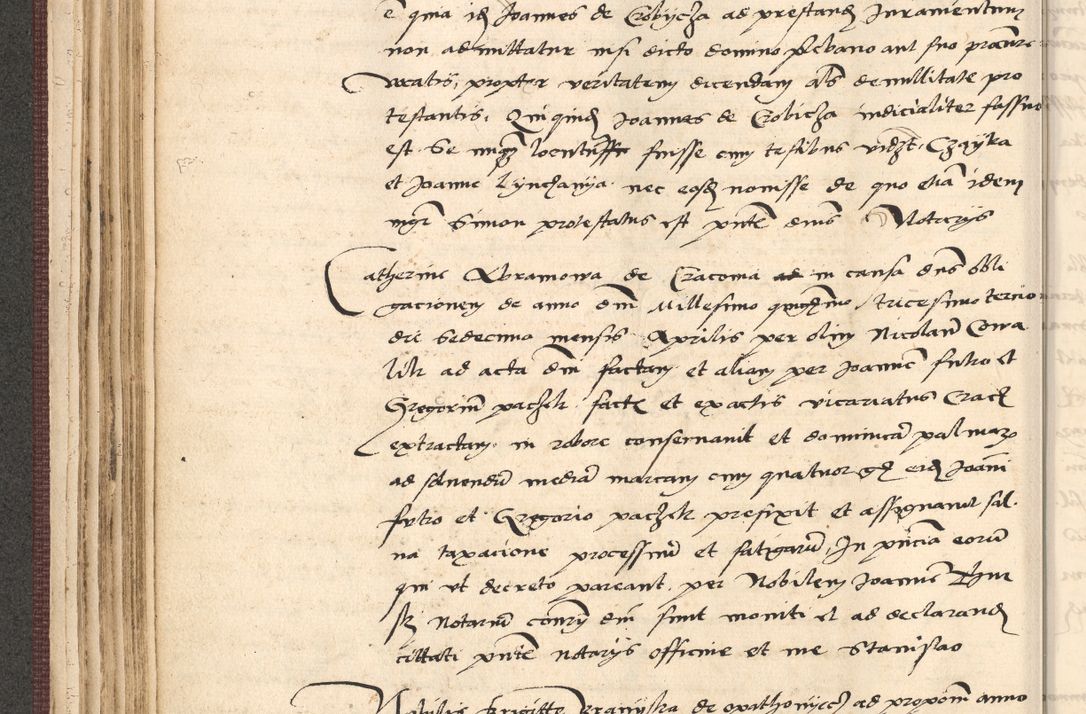 e quia idem Joannes de Crobycza ad prestand Juramentum
non admittatur nisi dicto domino plebano aut suo procure
vocatis, propter veritatem dicendam als de nullitate pro
testantis. Qui quid Joannes de Crobicza indicialiter fassus
est se nunq locutu fuisse cum testibus vidzt Czayka
et Joanne Lynchanya nec eosd nouisse de quo etiã idem
mgr Simon protestatus est pnte eius Notarys
Catherine Abramowa de Cracouia in causa dns obli
gacionem de anno dni Millesimo quingmo tricesimo tercio
die sedecima mensis Aprilis per olim Nicolaum Cowa
lik ad acta dni factam et aliam per Joannem futro et
Gregoriũ pachek facte et ex actis vicariatus Crac
extractam in robore conseruauit et dominicã palmar
ad soluendũ mediã marcam cum quatuor gr eid Joanni
futro et Gregorio pachek prefixit et assignauit sal
ua taxacione processuũ et fatigarũ, In pñcia eorum
qui vt decreto pareant, per Nobilem Joannem
Notariũ dni sunt moniti et ad declarand
cittati pnte notarys officine et me Stanislao
Nobilis Brigitte de opathowyecz ad proponend anno